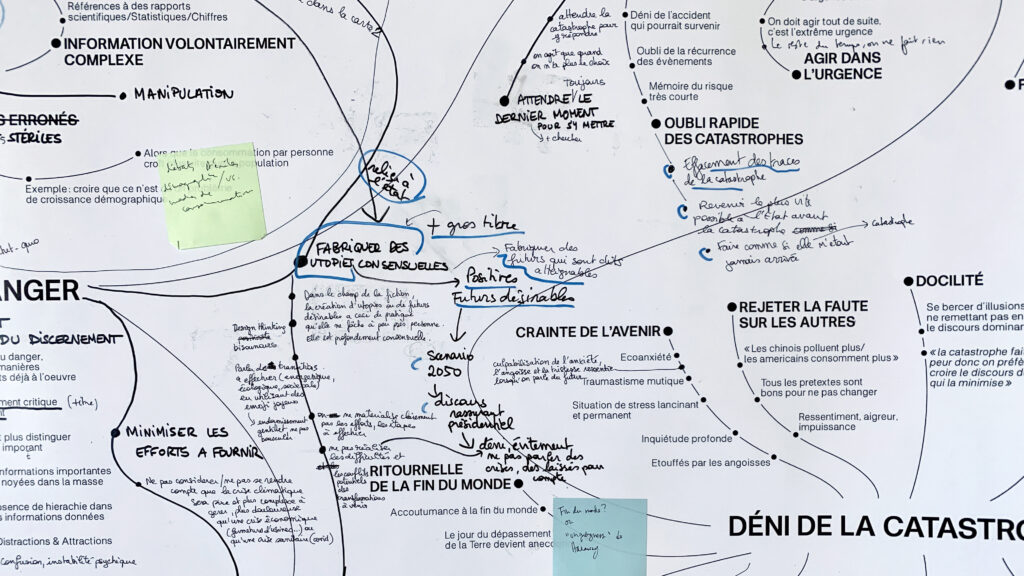 Références à des rapports
scientifiques/Statistiques/Chiffres
INFORMATION VOLONTAIREMENT
COMPLEXE
MANIPULATION
S ERRONÉS
STÉRILES
Alors que la consommation par personne
population
Exemple : croire que ce n'est
de croissance démographique
dans la carte
relier à
l'état
+ gros titre
FABRIQUER DES
UTOPIES CONSENSUELLES
Fabriquer des
futurs qui sont dits
atteignables
Positives
Futurs désirables
Dans le champ de la fiction,
la création d'utopies ou de futurs
désirables a ceci de pratique
qu'elle ne fâche à peu près personne.
elle est profondément consensuelle.
Design thinking
bisounours
Parler de transitions
à effectuer (énergétique,
écologique, sociétale)
en utilisant des
emoji joyeux
ne matérialise clairement
pas les efforts, les étapes
à effectuer
ne pas réaliser
les difficultés et
les conflits
potentiels
des
transformations
à venir
Scénario
2050
discours
rassurant
présidentiel
ne pas parler des
crises, des laissés pour
compte
culpabilisation de l'anxiété,
l'angoisse et la tristesse ressentie
lorsqu'on parle du futur
attendre la
catastrophe pour
y répondre
on agit que quand
on n'a plus le choix
Toujours
ATTENDRE LE
DERNIER MOMENT
POUR S'Y METTRE
+ chercher
Déni de l'accident
qui pourrait survenir
Oubli de la récurrence
des évènements
Mémoire du risque
très courte
OUBLI RAPIDE
DES CATASTROPHES
Effacement des traces
de la catastrophe
Revenir le plus vite
possible à l'état avant
la catastrophe comme si
catastrophe
Faire comme si elle n'était
jamais arrivée
On doit agir tout de suite,
c'est l'extrême urgence
Le reste du temps, on ne fait rien
AGIR DANS
L'URGENCE
ANGER
DU DISCERNEMENT
u danger.
manières
ts déjà à l'oeuvre
ment critique
t plus distinguer
t important
nformations importantes
noyées dans la masse
bsence de hierachie dans
s informations données
Distractions & Attractions
confusion, instabilité psychique
MINIMISER LES
EFFORTS A FOURNIR
Ne pas considérer/ne pas se rendre
compte que la crise climatique
sera pire et plus complexe à
gérer, plus douloureuse
qu'une crise économique
(fermeture d'usines...) ou
qu'une crise sanitaire (covid)
RITOURNELLE
DE LA FIN DU MONDE
Accoutumance à la fin du monde
Le jour du dépassement
de la Terre devient anec
Fin du monde?
ou
CRAINTE DE L'AVENIR
Ecoanxiété
Traumastisme mutique
Situation de stress lancinant
et permanent
Inquiétude profonde
Etouffés par les angoisses
REJETER LA FAUTE
SUR LES AUTRES
« Les chinois polluent plus/
les americains consomment plus »
Tous les pretextes sont
bons pour ne pas changer
Ressentiment, aigreur,
impuissance
DOCILITÉ
Se bercer d'illusions
ne remettant pas en
le discours dominan
« la catastrophe fai
peur donc on préfè
croire le discours d
qui la minimise »
DÉNI DE LA CATASTRO